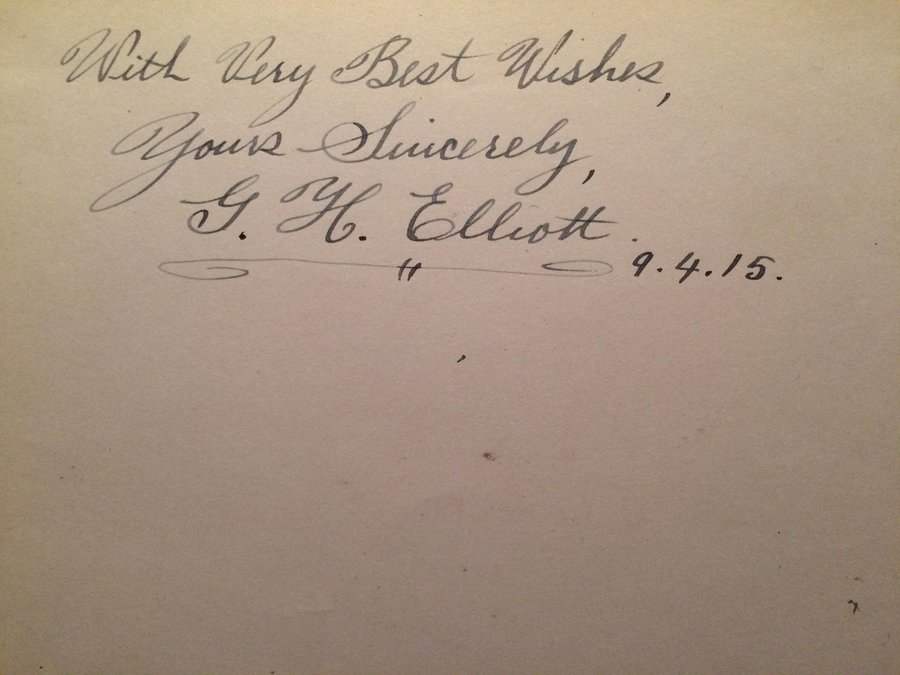 With Very Best Wishes,
Yours Sincerely,
G. H. Elliott.
9.4.15.